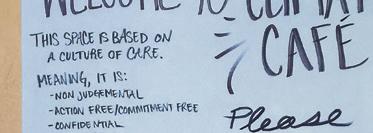 WELCOME TO CLIMATE
CAFÉ
THIS SPACE IS BASED ON
A CULTURE OF CARE.
MEANING, IT IS:
-NON JUDGEMENTAL
-ACTION FREE/COMMITMENT FREE
-CONFIDENTIAL
Please